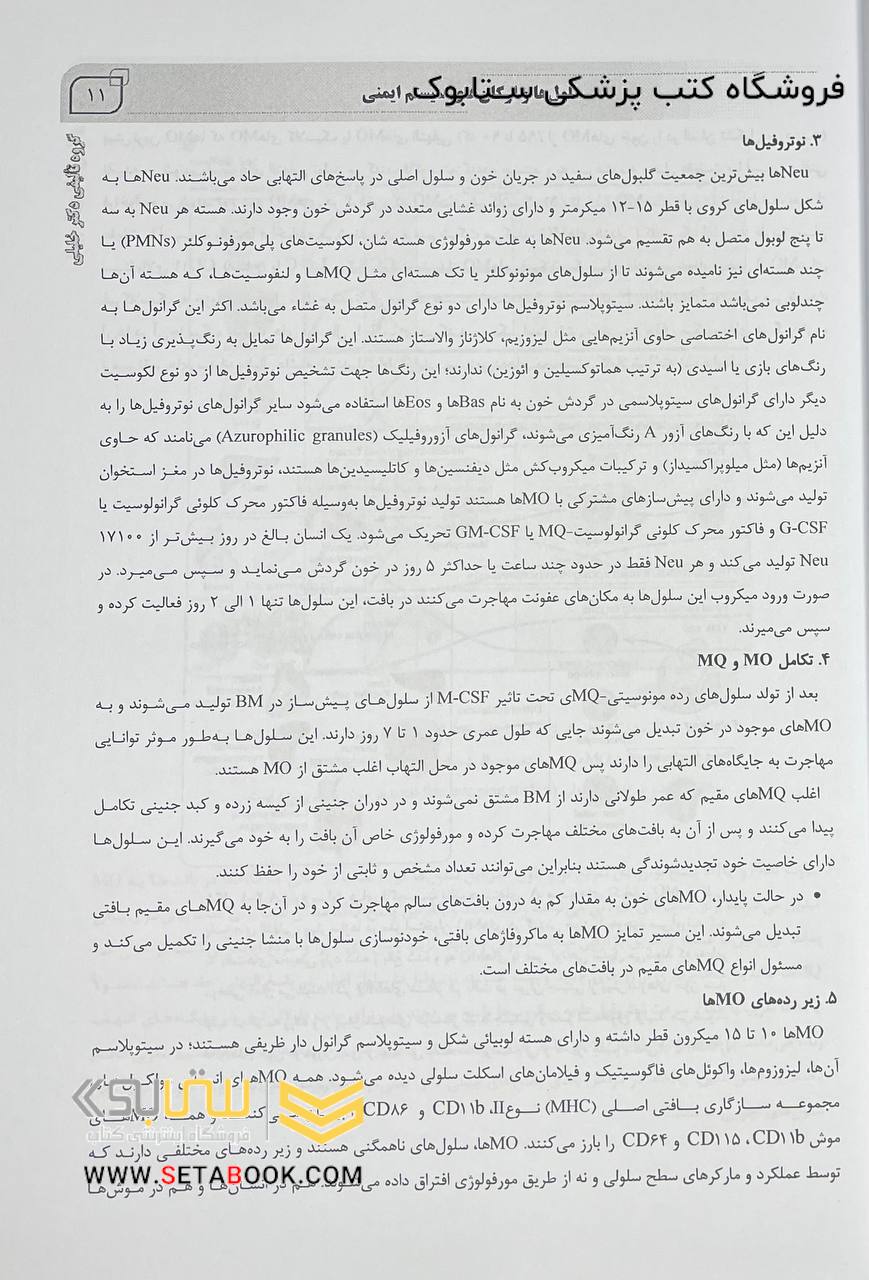 فروشگاه کتب پزشکی ستابوک
ایمنی
۱۱
گروه تالیفی دکتر خلیلی
۳. نوتروفیل‌ها
Neuها بیش‌ترین جمعیت گلبول‌های سفید در جریان خون و سلول اصلی در پاسخ‌های التهابی حاد می‌باشند. Neuها به
شکل سلول‌های کروی با قطر ۱۵-۱۲ میکرمتر و دارای زوائد غشایی متعدد در گردش خون وجود دارند. هسته هر Neu به سه
تا پنج لوبول متصل به هم تقسیم می‌شود. Neuها به علت مورفولوژی هسته شان، لکوسیت‌های پلی‌مورفونوکلئر (PMNs) یا
چند هسته‌ای نیز نامیده می‌شوند تا از سلول‌های مونونوکلئر یا تک هسته‌ای مثل MQها و لنفوسیت‌ها، که هسته آن‌ها
چندلوبی نمی‌باشد متمایز باشند. سیتوپلاسم نوتروفیل‌ها دارای دو نوع گرانول متصل به غشاء می‌باشد. اکثر این گرانول‌ها به
نام گرانول‌های اختصاصی حاوی آنزیم‌هایی مثل لیزوزیم، کلاژناز والاستاز هستند. این گرانول‌ها تمایل به رنگ‌پذیری زیاد با
رنگ‌های بازی یا اسیدی (به ترتیب هماتوکسیلین و ائوزین) ندارند؛ این رنگ‌ها جهت تشخیص نوتروفیل‌ها از دو نوع لکوسیت
دیگر دارای گرانول‌های سیتوپلاسمی در گردش خون به نام Basها و Eosها استفاده می‌شود سایر گرانول‌های نوتروفیل‌ها را به
دلیل این که با رنگ‌های آزور A رنگ‌آمیزی می‌شوند، گرانول‌های آزوروفیلیک (Azurophilic granules) می‌نامند که حاوی
آنزیم‌ها (مثل میلوپراکسیداز) و ترکیبات میکروب‌کش مثل دیفنسین‌ها و کاتلیسیدین‌ها هستند، نوتروفیل‌ها در مغز استخوان
تولید می‌شوند و دارای پیش‌سازهای مشترکی با MOها هستند تولید نوتروفیل‌ها به‌وسیله فاکتور محرک کلونی گرانولوسیت یا
G-CSF و فاکتور محرک کلونی گرانولوسیت-MQ یا GM-CSF تحریک می‌شود. یک انسان بالغ در روز بیش‌تر از ۱۷۱۰۰
Neu تولید می‌کند و هر Neu فقط در حدود چند ساعت یا حداکثر ۵ روز در خون گردش می‌نماید و سپس می‌میرد. در
صورت ورود میکروب این سلول‌ها به مکان‌های عفونت مهاجرت می‌کنند در بافت، این سلول‌ها تنها ۱ الی ۲ روز فعالیت کرده و
سپس می‌میرند.
۴. تکامل MO و MQ
بعد از تولد سلول‌های رده مونوسیتی-MQی تحت تاثیر M-CSF از سلول‌های پیش‌ساز در BM تولید می‌شوند و به
MOهای موجود در خون تبدیل می‌شوند جایی که طول عمری حدود ۱ تا ۷ روز دارند. این سلول‌ها به‌طور موثر توانایی
مهاجرت به جایگاه‌های التهابی را دارند پس MQهای موجود در محل التهاب اغلب مشتق از MO هستند.
اغلب MQهای مقیم که عمر طولانی دارند از BM مشتق نمی‌شوند و در دوران جنینی از کیسه زرده و کبد جنینی تکامل
پیدا می‌کنند و پس از آن به بافت‌های مختلف مهاجرت کرده و مورفولوژی خاص آن بافت را به خود می‌گیرند. این سلول‌ها
دارای خاصیت خود تجدیدشوندگی هستند بنابراین می‌توانند تعداد مشخص و ثابتی از خود را حفظ کنند.
• در حالت پایدار، MOهای خون به مقدار کم به درون بافت‌های سالم مهاجرت کرد و در آن‌جا به MQهای مقیم بافتی
تبدیل می‌شوند. این مسیر تمایز MOها به ماکروفاژهای بافتی، خودنوسازی سلول‌ها با منشا جنینی را تکمیل می‌کند و
مسئول انواع MQهای مقیم در بافت‌های مختلف است.
۵. زیر رده‌های MOها
MOها ۱۰ تا ۱۵ میکرون قطر داشته و دارای هسته لوبیائی شکل و سیتوپلاسم گرانول دار ظریفی هستند؛ در سیتوپلاسم
آن‌ها، لیزوزوم‌ها، واکوئل‌های فاگوسیتیک و فیلامان‌های اسکلت سلولی دیده می‌شود. همه MOهای
مجموعه سازگاری بافتی اصلی (MHC) نوعII، CD۱۱b و CD۸۶
موش CD۱۱b، CD۱۱۵ و CD۶۴ را بارز می‌کنند. MOها، سلول‌های ناهمگنی هستند و زیر رده‌های مختلفی دارند که
توسط عملکرد و مارکرهای سطح سلولی و نه از طریق مورفولوژی افتراق داده می‌شوند. هم در انسان‌ها و هم در موش‌ها
ستابوک
فروشگاه اینترنتی کتاب
WWW.SETABOOK.COM